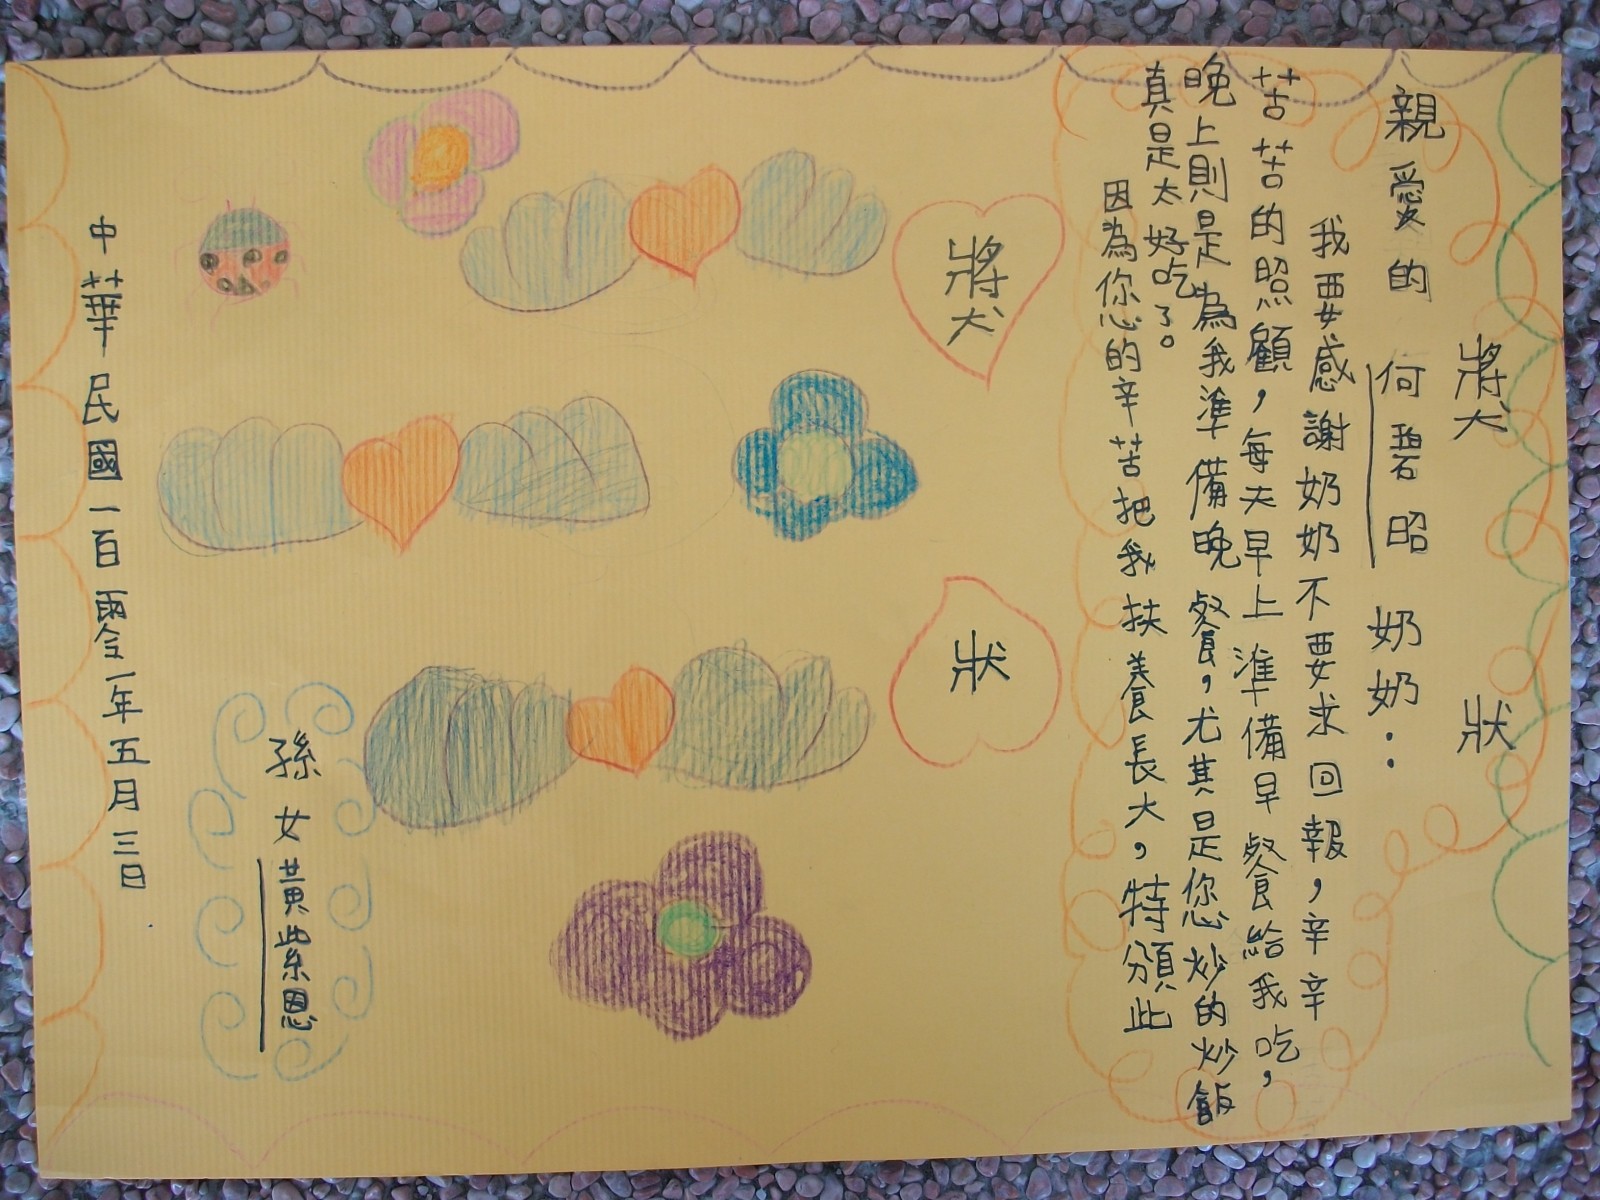 奬狀
親愛的何碧昭奶奶:
我要感謝奶奶不要求回報，辛辛
苦苦的照顧，每天早上準備早餐給我吃，
晚上則是為我準備晚餐，尤其是您炒的炒飯
真是太好吃了。
因為您的辛苦把我扶養長大，特頒此
奬狀
孫女黃紫恩
中華民國一百零一年五月三日